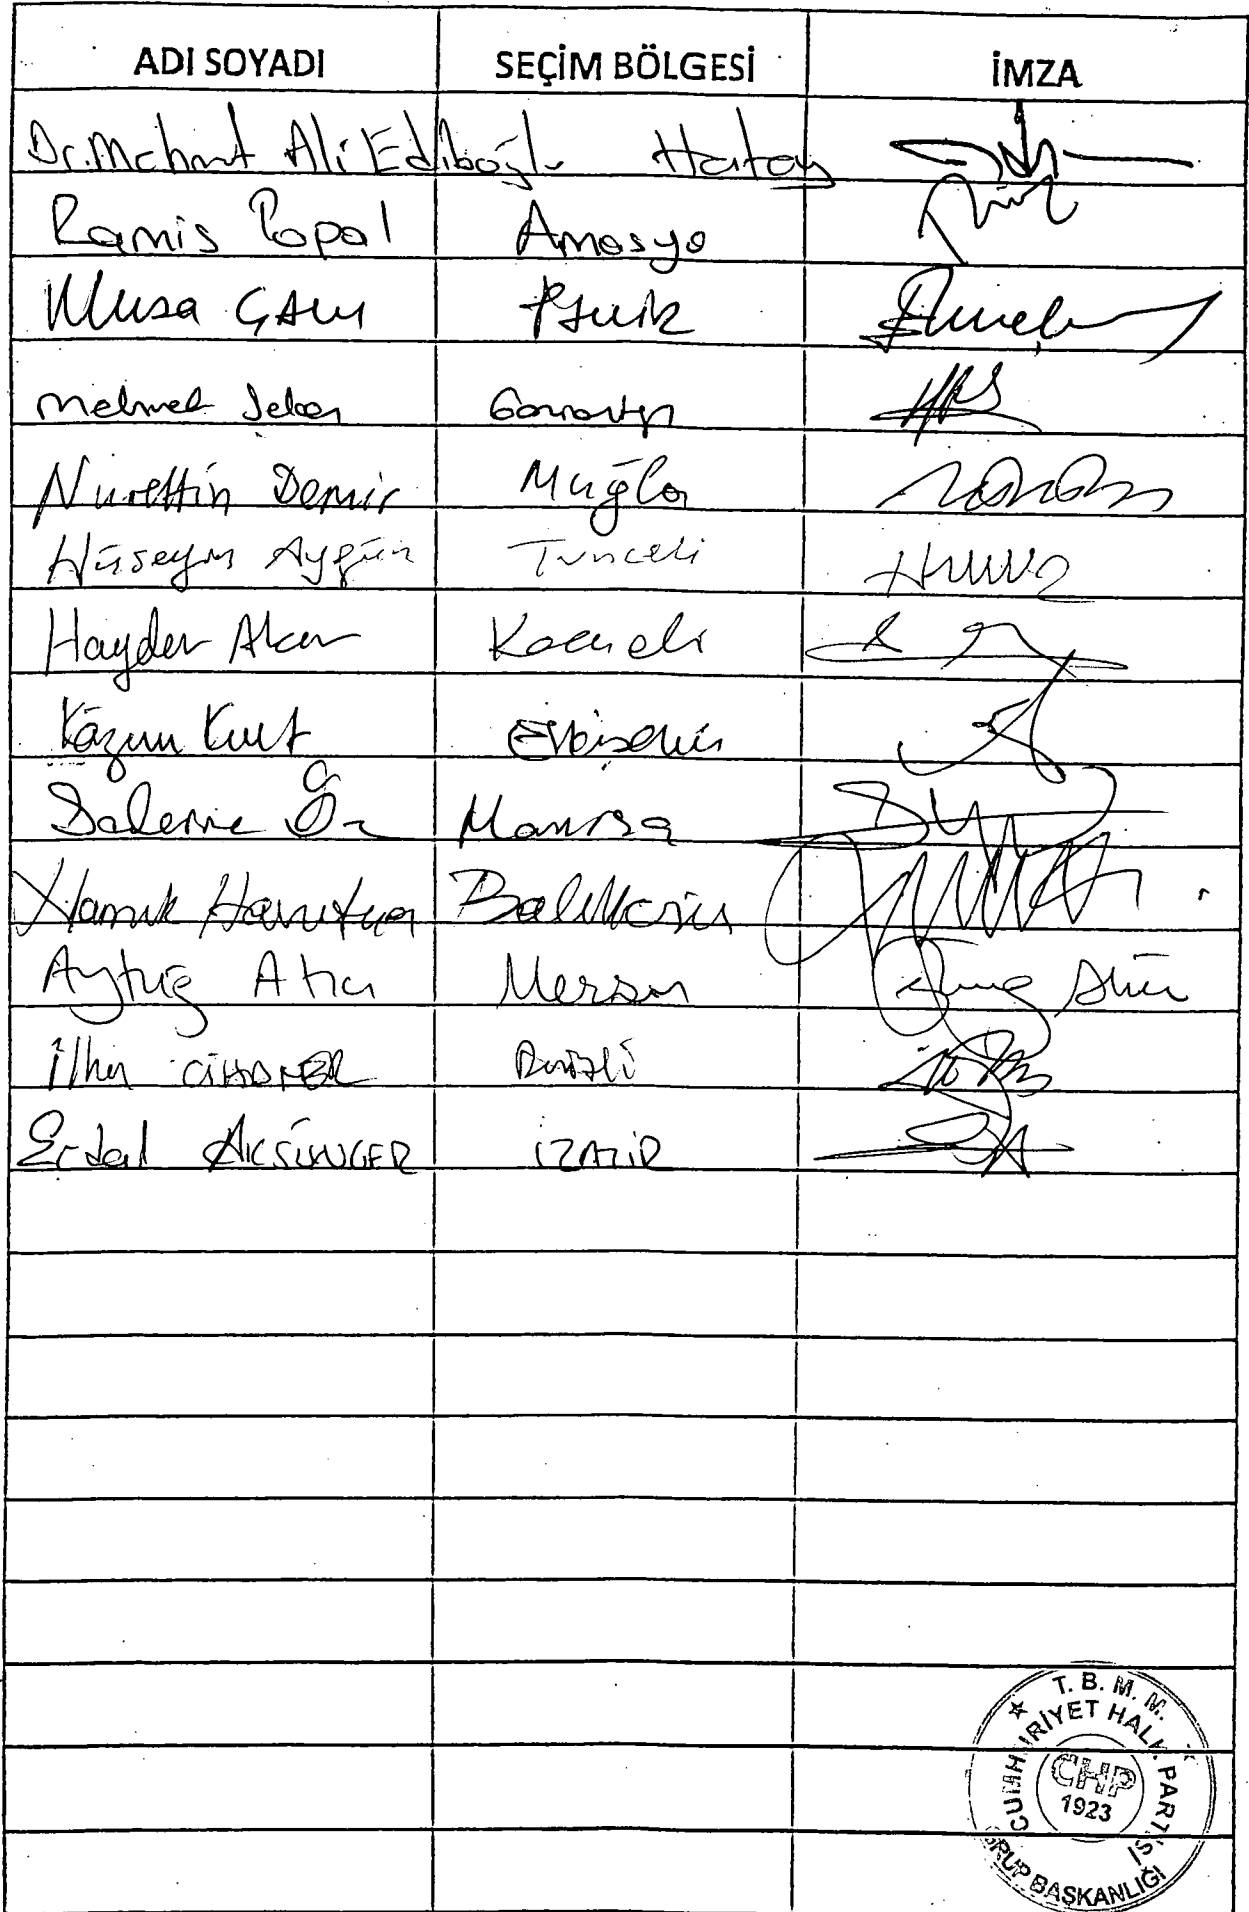 ADI SOYADI SEÇİM BÖLGESİ İMZA
Dr. Mehmet Ali Ediboğlu Hatay
Ramis Topal Amasya
Musa ÇAM İzmir
Mehmet Şeker Gaziantep
Nurettin Demir Muğla
Hüseyin Aygün Tunceli
Haydar Akar Kocaeli
Kazım Kurt Eskişehir
Sakine Öz Manisa
Namık Havutça Balıkesir
Aytuğ Atıcı Mersin
İlhan CİHANER Denizli
Erdal AKSÜNGER İZMİR
T. B. M. M.
CUMHURİYET HALK PARTİSİ
CHP
1923
GRUP BAŞKANLIĞI